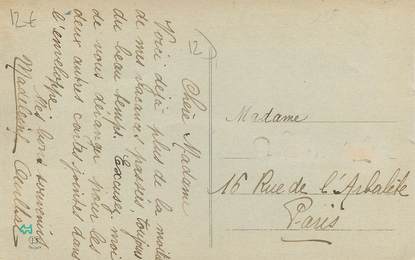 12€
12
Chère Madame
Voici déjà plus de la moitié
de mes vacances passées, toujours
du beau temps. Excusez moi
de vous déranger pour les
deux autres cartes jointes dans
l'enveloppe.
Mes bons souvenirs
Madeleine
Madame
16 Rue de l'Arbalète
Paris